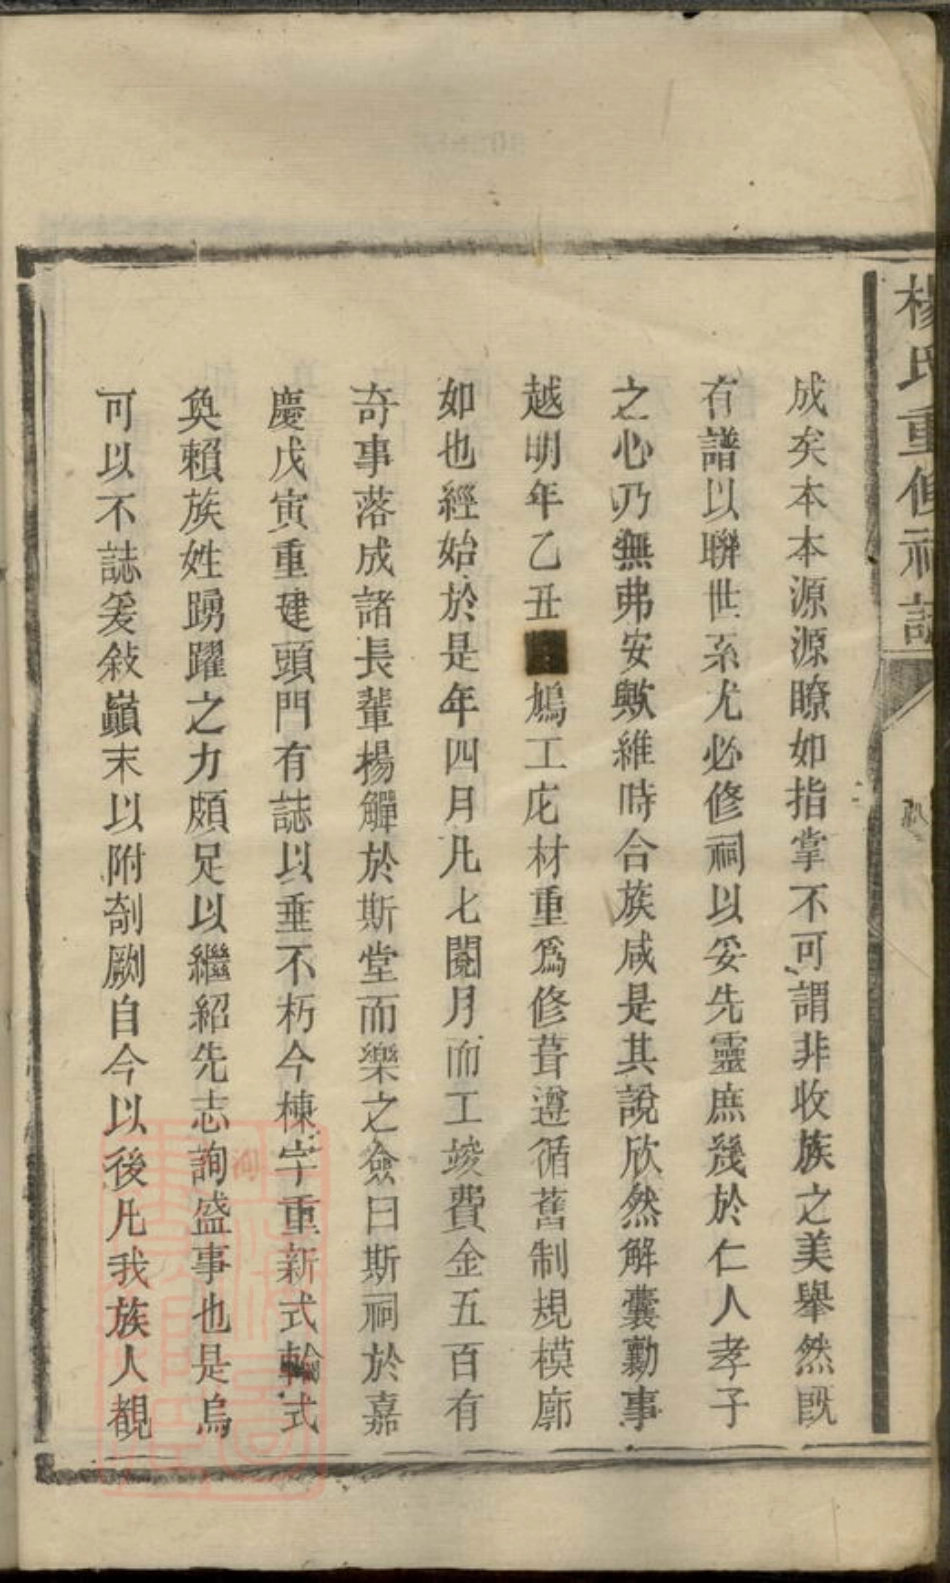 楊氏重修祠記
成矣本本源源瞭如指掌不可謂非收族之美舉然旣
有譜以聯世系尤必修祠以妥先靈庶幾於仁人孝子
之心乃無弗安歟維時合族咸是其說欣然解囊勷事
越明年乙丑鳩工庀材重爲修葺遵循舊制規模廓
如也經始於是年四月凡七閱月而工竣費金五百有
奇事落成諸長輩揚觶於斯堂而樂之僉曰斯祠於嘉
慶戊寅重建頭門有誌以垂不朽今棟宇重新式輪式
奐賴族姓踴躍之力頗足以繼紹先志詢盛事也是烏
可以不誌爰敍巔末以附剞劂自今以後凡我族人覩